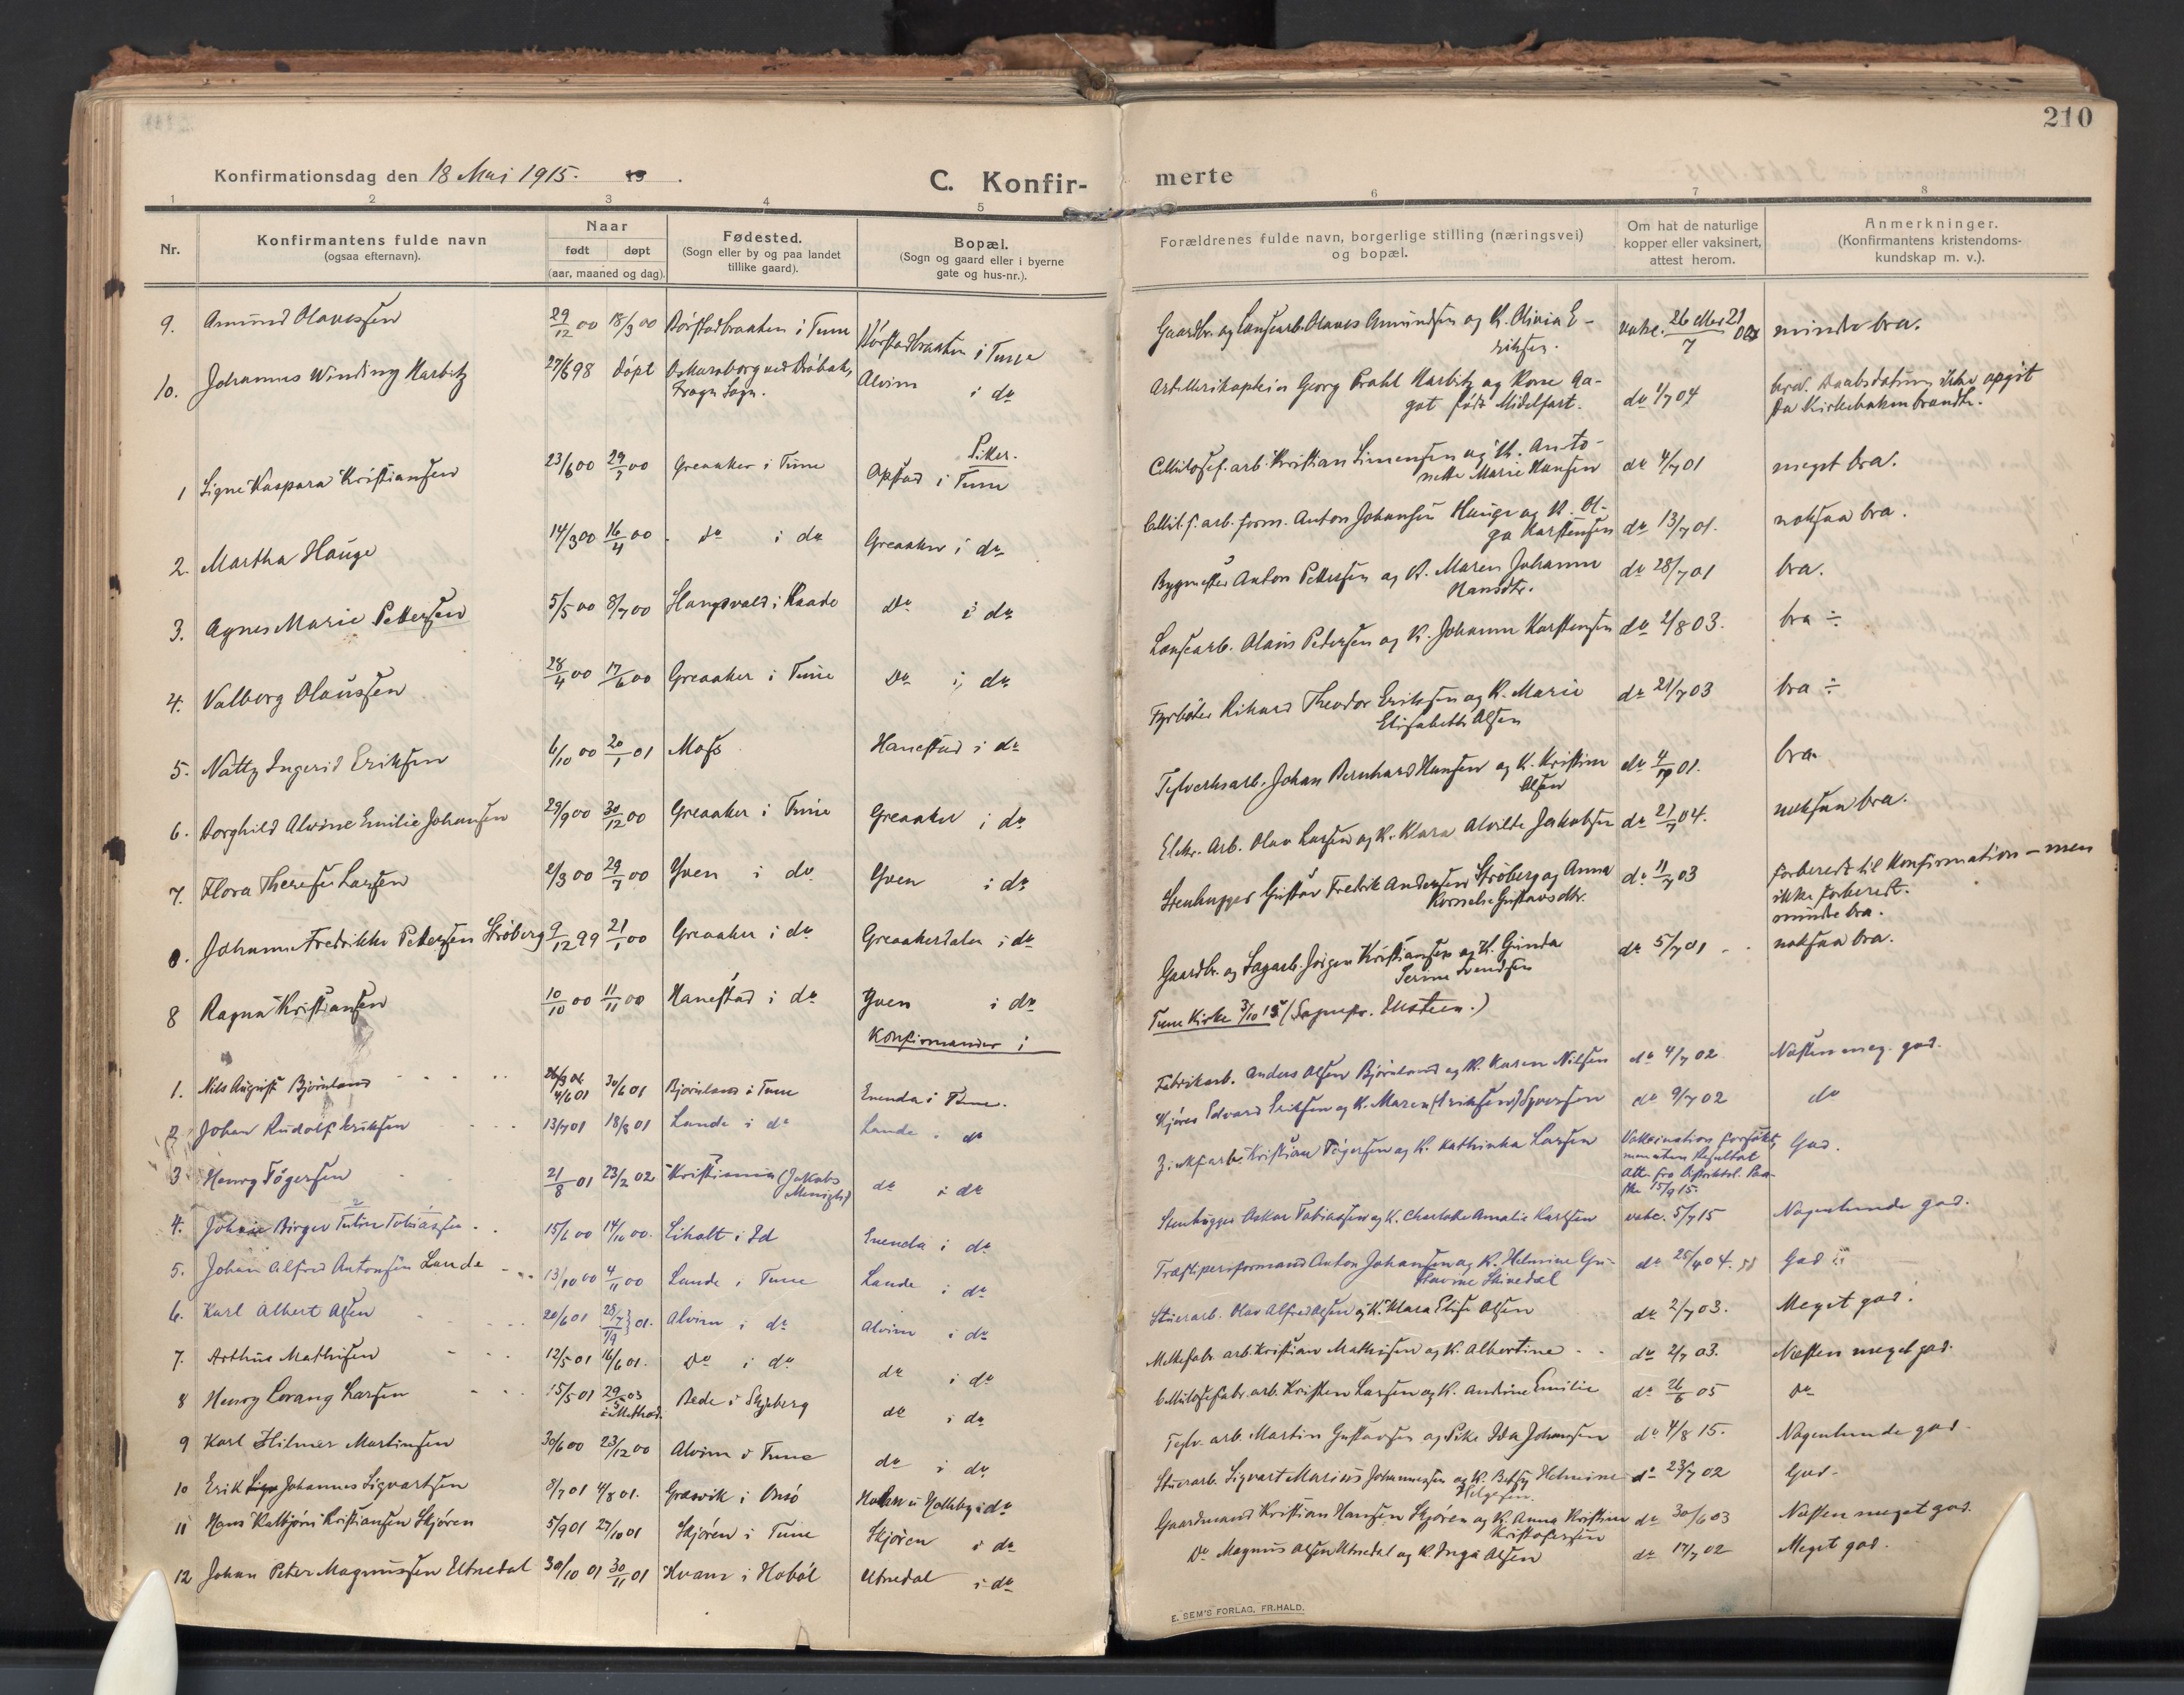 210
Konfirmationsdag den 18 Mai 1915. 19 .
C. Konfir-
merte
1 2 3 4 5 6 7 8
Nr.
Konfirmantens fulde navn
(ogsaa efternavn).
Naar
født døpt
(aar, maaned og dag).
Fødested.
(Sogn eller by og paa landet
tillike gaard).
Bopæl.
(Sogn og gaard eller i byerne
gate og hus-nr.).
Forældrenes fulde navn, borgerlige stilling (næringsvei)
og bopæl.
Om hat de naturlige
kopper eller vaksinert,
attest herom.
Anmerkninger.
(Konfirmantens kristendoms-
kundskap m. v.).
9. Amund Olavessen 29/12 00 18/3 00 i Tune i Tune Olaves Amundsen og K. Olivia E- mindre bra.
riksen.
10. Johannes Winding Harbitz 27/6 98 døpt Oskarsborg ved Drøbak, Alvim i do Artillerikaptein Georg Prahl Harbitz og Kone Aa- do 1/7 04 bra. Daabsdatum ikke opgit
Frogn Sogn. got født Midelfart. da Kirkeboken brændte.
Piker.
1 Signe Kaspara Kristiansen 23/6 00 29/7 00 Greaaker i Tune Opstad i Tune Cellulosef. arb. Kristian Simensen og K. Anto- do 4/7 01 meget bra.
nette Marie Hansen
2. Martha Hauge 14/3 00 16/4 00 do i do Greaaker i do Cell. f. arb. form. Anton Johansen Hauge og K. Ol- do 13/7 01. noksaa bra.
ga Karstensen
3. Agnes Marie Pettersen 5/5 00 8/7 00 i Raade Do i do Bygmester Anton Pettersen og K. Maren Johanne do 28/7 01 bra.
Hansdtr.
4. Valborg Olaussen 28/4 00 17/6 00 Greaaker i Tune Do i do Olaus Pedersen og K. Johanne Karstensen do 2/8 03. bra ÷
5. Natty Ingerid Eriksen 6/10 00 20/1 01 Moss Hanestad i do Fyrbøter Rikard Theodor Eriksen og K. Marie do 21/7 03 bra ÷
Elisabeth Olsen
6. Borghild Alvine Emilie Johansen 29/9 00 30/12 00 Greaaker i Tune Greaaker i do Teglverksarb. Johan Bernhard Hansen og K. Kristine do 01. bra
Olsen
7. Flora Therese Larsen 2/3 00 29/7 00 Yven i do Yven i do Elektr. Arb. Olav Larsen og K. Klara Alvilde Jakobsen do 21/7 04. noksaa bra.
Johanne Fredrikke Pettersen Strøberg 9/12 99 21/1 00 Greaaker i do Greaakerdalen i do Stenhugger Gustav Fredrik Andersen Strøberg og Anna do 11/7 03 forberedt til Konfirmation – men
Kornelie Gustavsdtr. ikke forberedt.
mindre bra.
8 Ragna Kristiansen 10/10 00 11/11 00 Hanestad i do Yven i do Gaardbr. og Sagarb. Jørgen Kristiansen og K. Gunda do 5/7 01 noksaa bra.
Svendsen
Konfirmander i
Tune Kirke 3/10 15 (Sognepr. Ensteen.)
1. Nils August Bjørnland 4/6 01 30/6 01 Bjørnland i Tune Enenda i Tune. Fabrikarb. Anders Olsen Bjørnland og K. Karen Nilsen do 4/7 02 Næsten meg. god.
2 Johan Rudolf Eriksen 13/7 01 18/8 01 Lande i do Lande do Kjører Edvard Eriksen og K. Maren (Eriksen) Syversen do 9/7 02 do
3 Henry Tøgersen 21/8 01 23/2 02 Kristiania (Jakobs do i do Zinkfarb. Kristian Tøgersen og K. Kathinka Larsen Vaksination forsøkt, God.
Menighed) men uten Resultat
Att. fra Distriktsl.
15/9 15.
4. Birger Tobiassen 15/6 00 14/10 00. Liholt i Id Enenda i do Stenhugger Oskar Tobiassen og K. Charlotte Amalie Karlsen vakc. 5/7 15 Nogenlunde god.
5. Johan Alfred Antonsen Lande 13/10 00 4/11 00 Lande i Tune Lande i do Træsliperiformand Anton Johansen og K. Helmine Gu- do 25/4 04. God
6. Karl Albert Olsen 20/6 01 28/7 1/9 } 01. Alvim i do Alvim i do Stuerarb. Olav Alfred Olsen og K. Klara Elise Olsen do 2/7 03. Meget god.
7. Arthur Mathisen 12/5 01 16/6 01. Do i do do i do Melkefabr. arb. Kristian Mathisen og K. Albertine do 2/7 03. Næsten meget god.
8 Henry Lorang Larsen 15/5 01 29/5 03 Bede i Skjeberg do i do Cellulosefabr. arb. Kristen Larsen og K. Andrine Emilie do 26/6 05 Do
i Methed.
9 Karl Hilmer Martinsen 30/6 00 23/12 00 Alvim i Tune do i do Teglv. arb. Martin Gustavsen og Pike Ida Johansen do 4/8 15. Nogenlunde god
10 Erik Johannes Sigvartsen 8/7 01 4/8 01. Græsvik i Onsø i do Stuerarb. Sigvart Marius Johannessen og K. Betsy Helmine do 23/7 02 God.
Helgesen
11 Hans Kristiansen Skjøren 5/9 01 27/10 01 Skjøren i Tune Skjøren i do Gaardmand Kristian Hansen Skjøren og K. Anna Kristine do 30/6 03 Næsten meget god.
Kristofersen
12 Johan Peter Magnussen Utnedal 30/10 01 30/11 01 i Hobøl Utnedal i do Do Magnus Olsen Utnedal og K. Inga Olsen do 17/7 02 Meget god.
E. SEM'S FORLAG, FR.HALD.